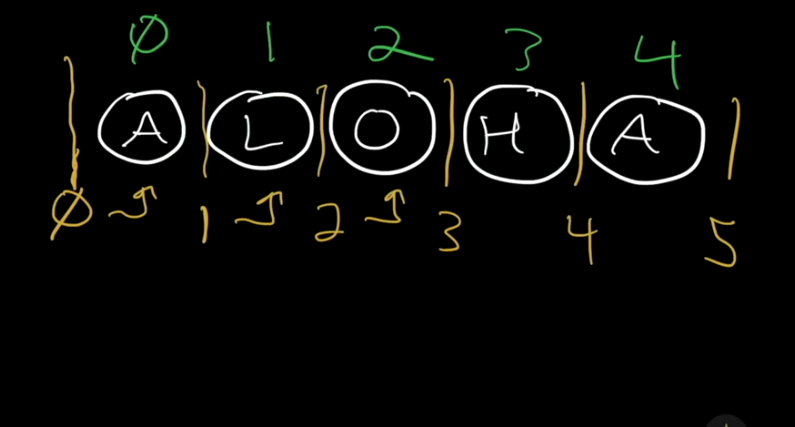 0 1 2 3 4
A L O H A
0 1 2 3 4 5